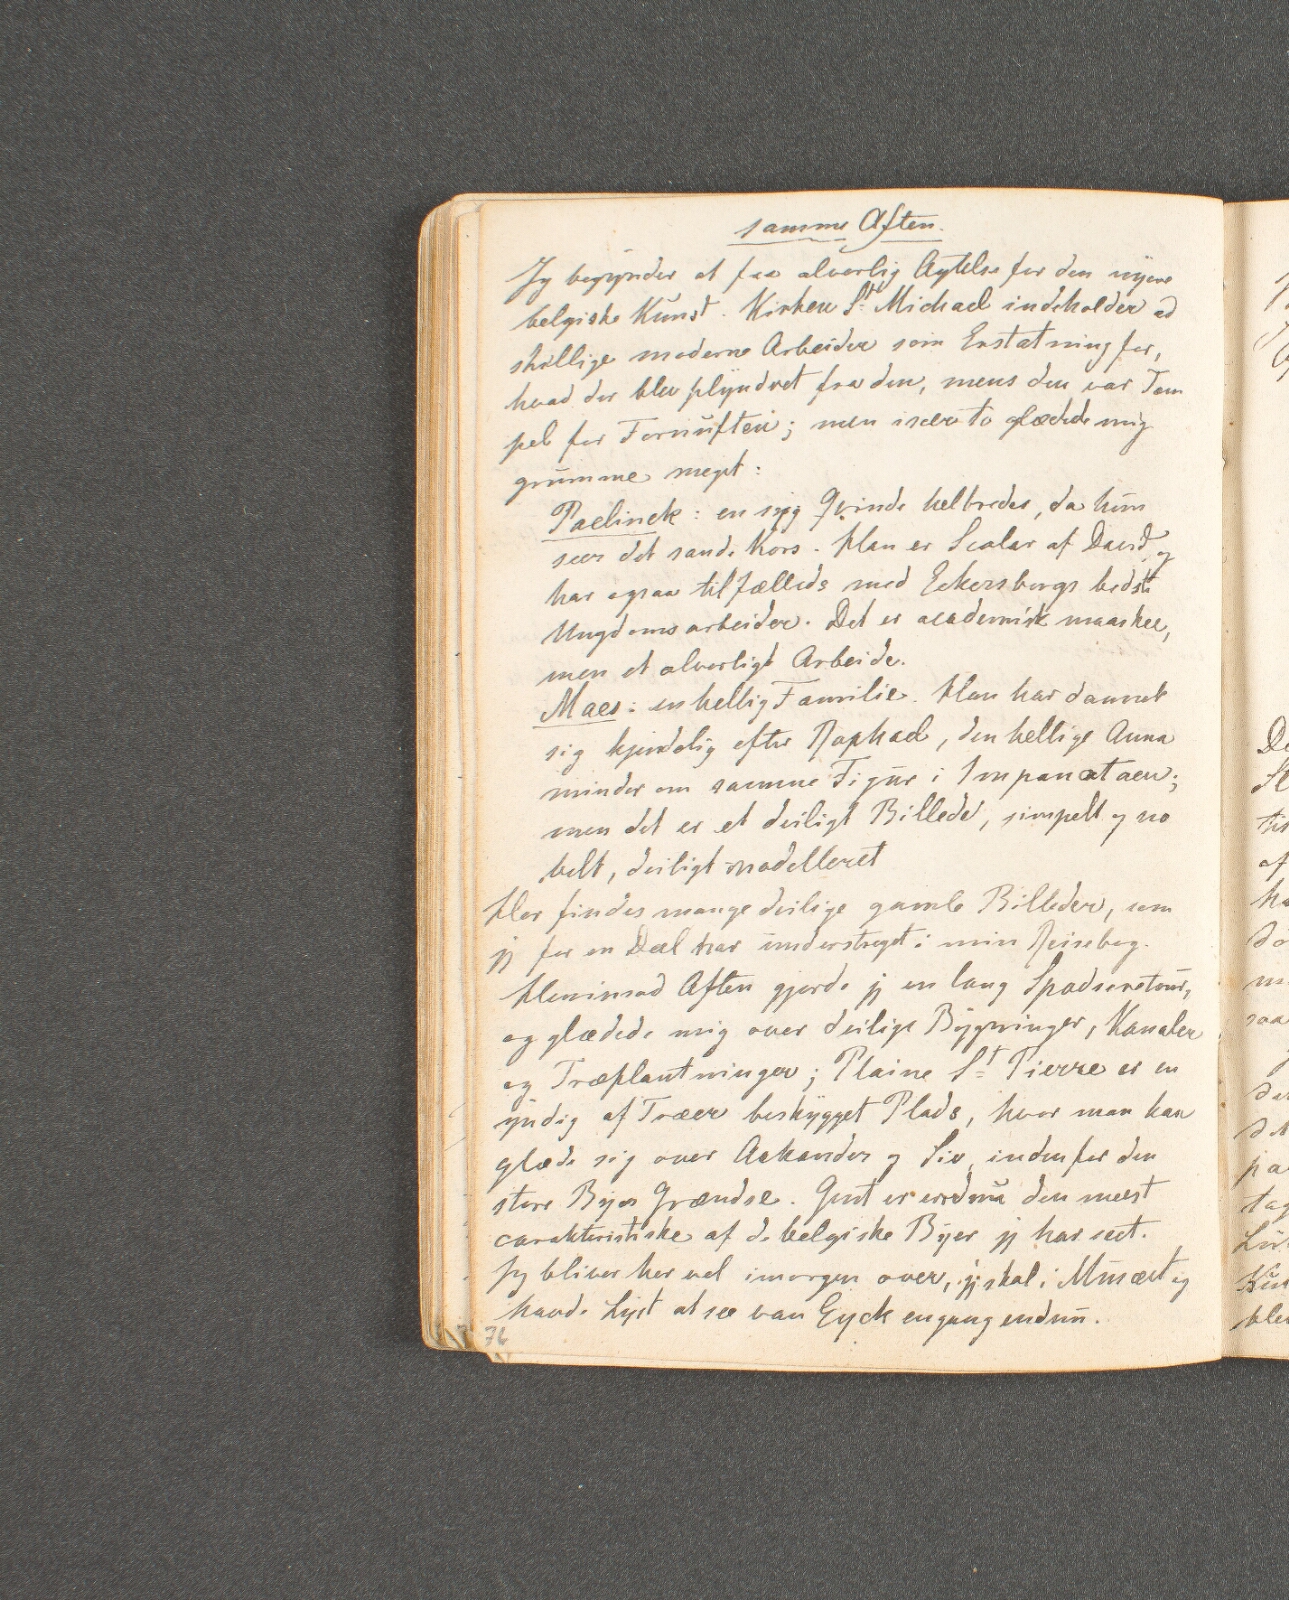 samme Aften.
Jeg begynder at faa alvorlig Agtelse for den nyere
belgiske Kunst. Kirken St Michael indeholder ad
skillige moderne Arbeider som Erstatning for,
hvad der blev plyndret fra den, mens den var Tem
pel for Fornuften; men især to glædede mig
grumme meget:
Paelinck: en syg Qvinde helbredes, da hun
seer det sande Kors. Han er Scolar af David, og
har ogsaa tilfælleds med Eckersbergs bedste
Ungdomsarbeider. Det er academisk maaskee,
men et alvorligt Arbeide.
Maes: en hellig Familie. Han har dannet
sig kjendelig efter Raphael, den hellige Anna
minder om samme Figur i Impanataen;
men det er et deiligt Billede, simpelt og no
belt, deiligt modelleret
Her findes mange deilige gamle Billeder, som
jeg for en Deel har understreget i min Reisebog.
Henimod Aften gjorde jeg en lang Spadseretour,
og glædede mig over deilige Bygninger, Kanaler
og Træplantninger; Plaine St Pierre er en
yndig af Træer beskygget Plads, hvor man kan
glæde sig over Aakander og Siv indenfor den
store Byes Grændse. Gent er endnu den meest
carakteristiske af de belgiske Byer jeg har seet.
Jeg bliver her vel imorgen over, jeg skal i Musæet og
havde Lyst at see van Eyck engang endnu.
76